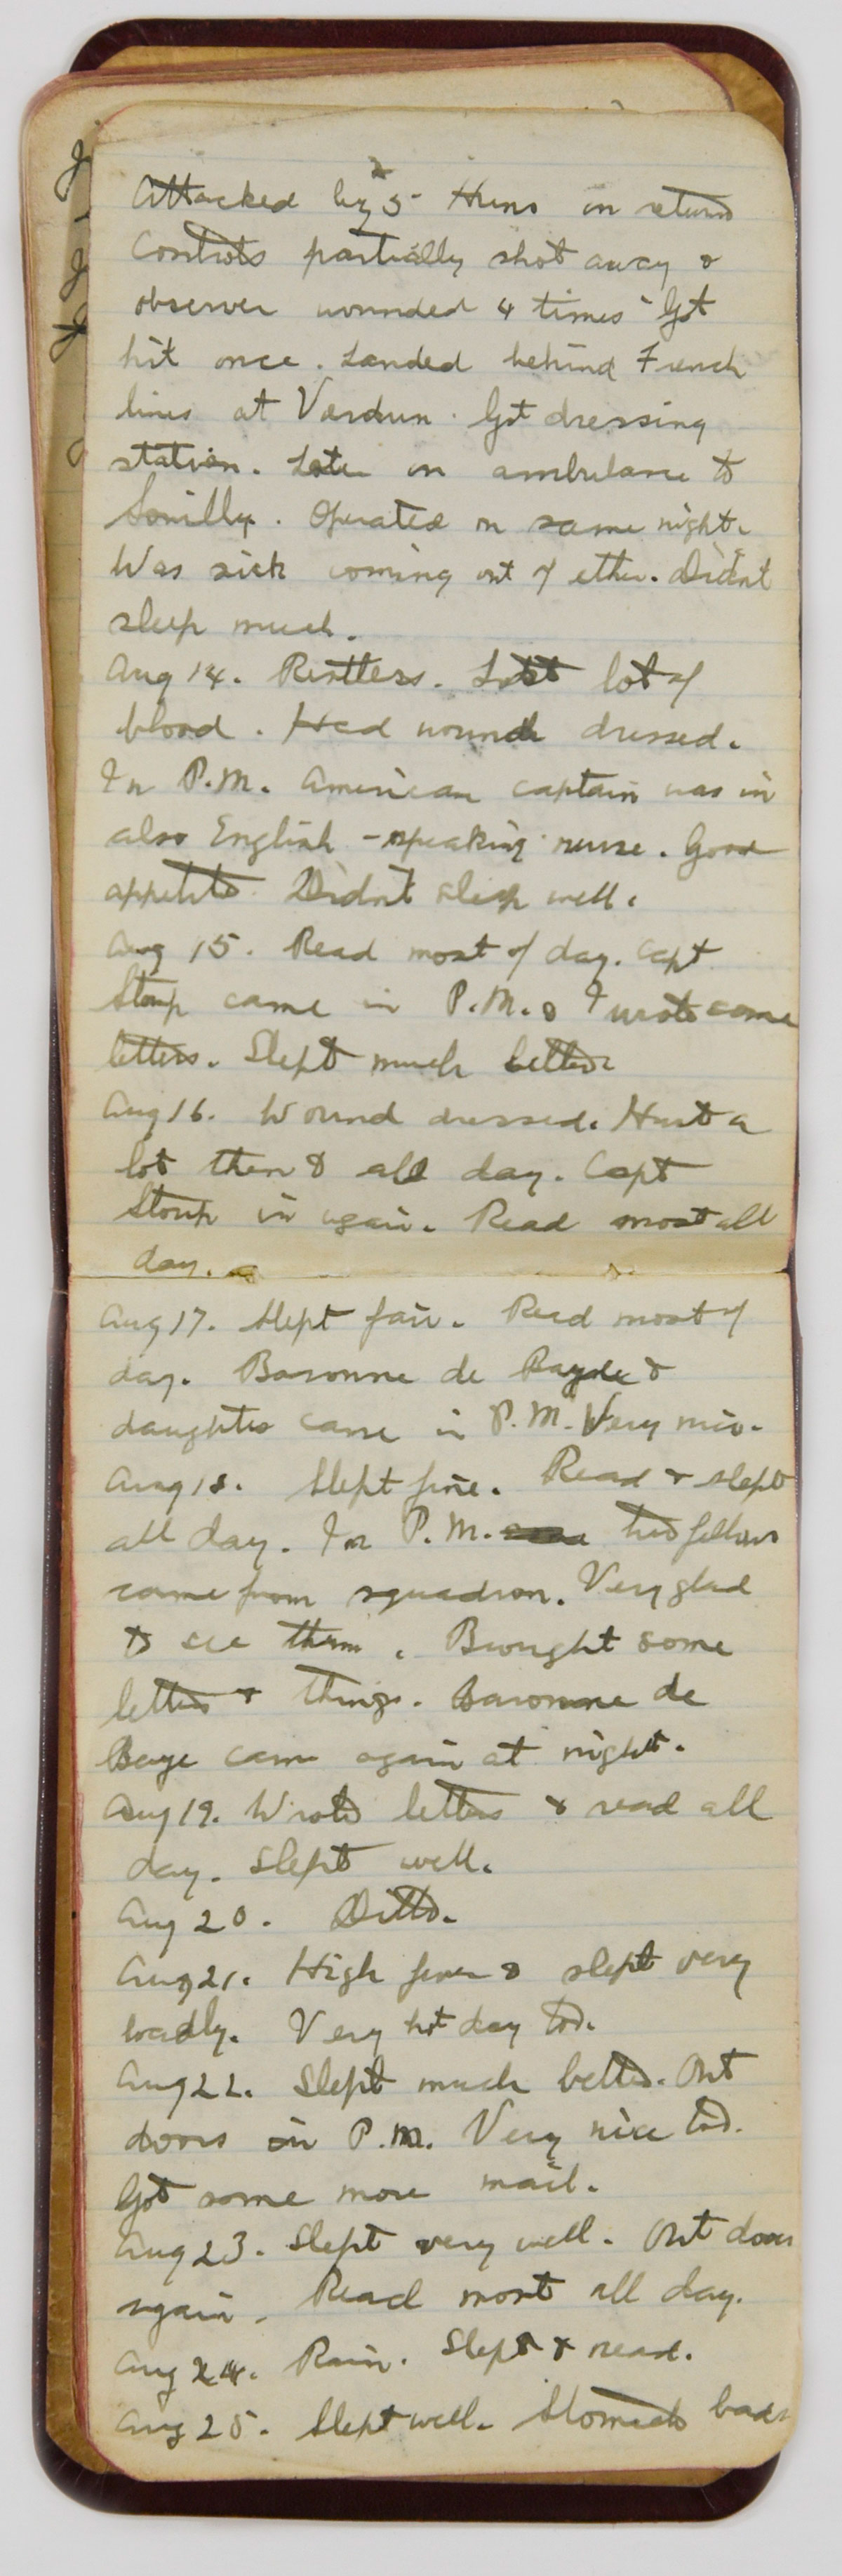 Attacked by 5 Huns on return
Controls partially shot away &
observer wounded 4 times Got
hit once. Landed behind French
lines at Verdun. Got dressing
station. Later in ambulance to
Souilly. Operated on same night.
Was sick coming out of ether. Didnt
sleep much.
Aug 14. Restless. Lost lot of
blood. Had wound dressed.
In P.M. American captain was in
also English-speaking nurse. Good
appetite Didn't sleep well.
Aug 15. Read most of day. Capt
Stoup came in P.M. & I wrote some
letters. Slept much better
Aug 16. Wound dressed. Hurt a
lot then & all day. Capt
Stoup in again. Read most all
day.
Aug 17. Slept fair. Read most of
day. Baronne de Baye &
daughter came in P.M. Very nice.
Aug 18. Slept fine. Read & slept
all day. In P.M. two fellows
came from squadron. Very glad
to see them. Brought some
letters & things. Baronne de
Baye came again at night.
Aug 19. Wrote letters & read all
day. Slept well.
Aug 20. Ditto.
Aug 21. High fever & slept very
badly. Very hot day too.
Aug 22. Slept much better. Out
doors in P.M. Very nice too.
Got some more mail.
Aug 23. Slept very well. Out doors
again. Read most all day.
Aug 24. Rain. Slept & read.
Aug 25. Slept well. Stomach bad